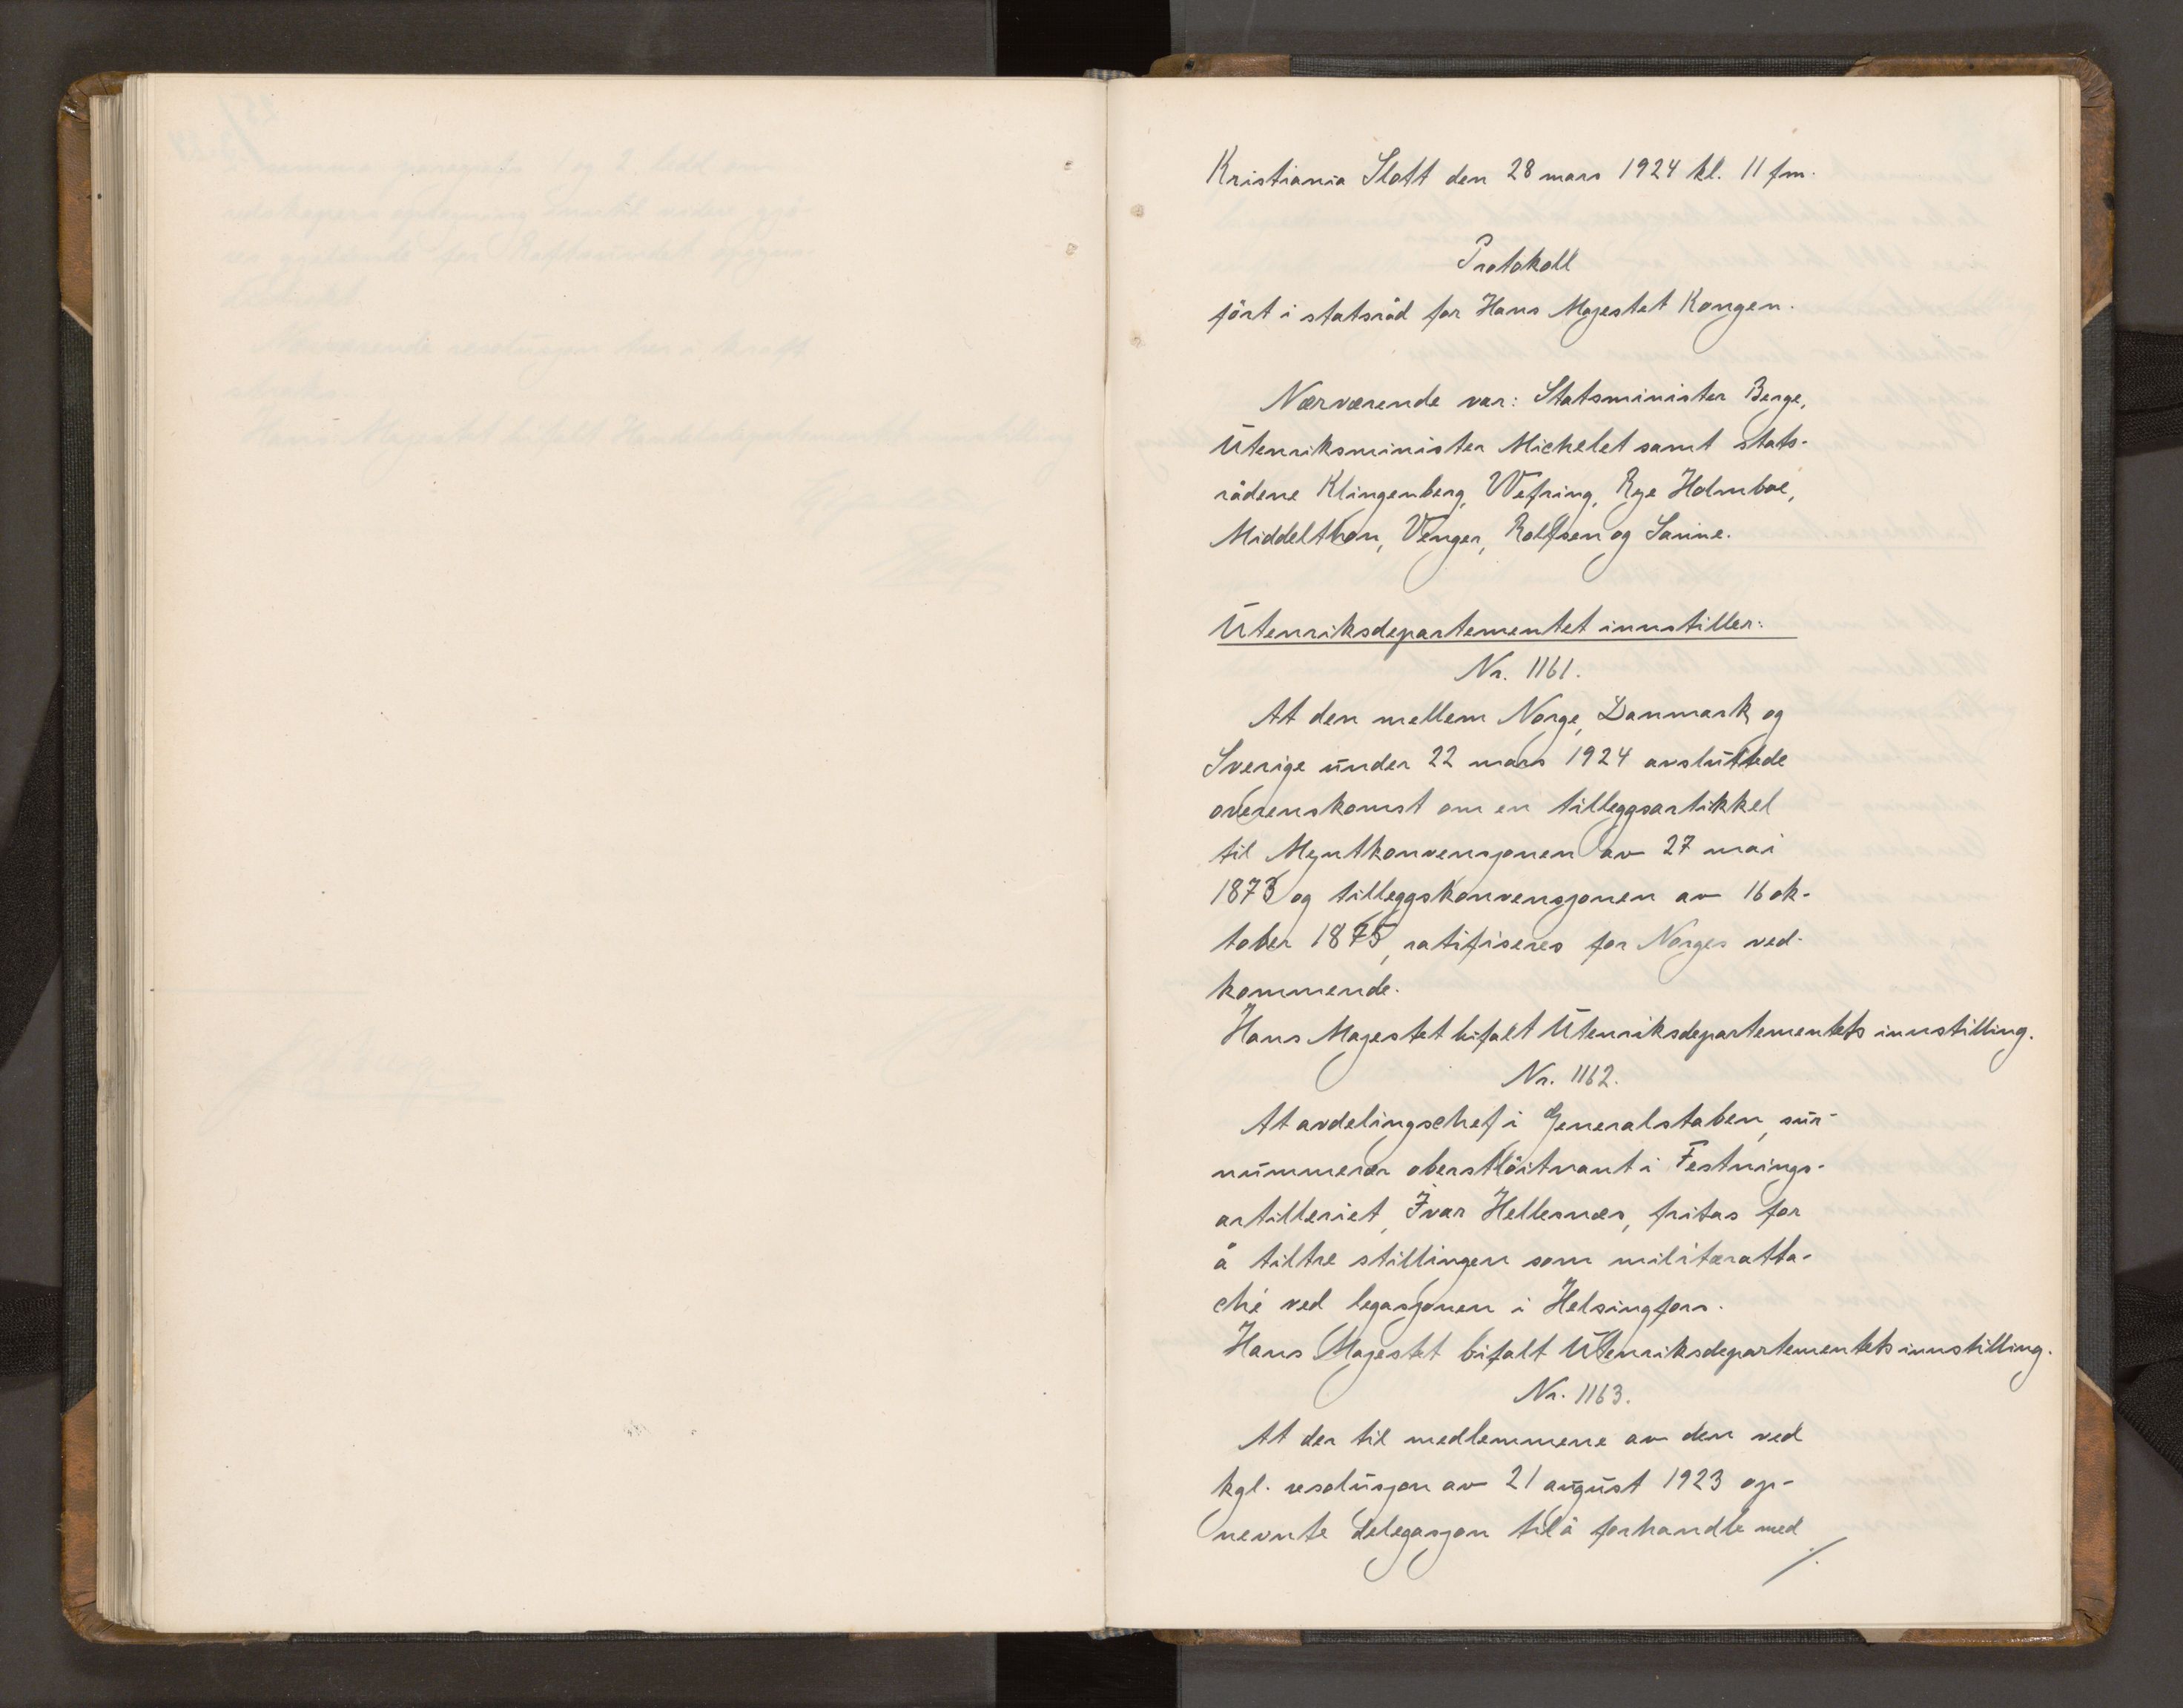 Kristiania Slott den 28 mars 1924 kl. 11 fm.
Protokoll
fört i statsråd for Hans Majestet Kongen.
Nærværende var: Statsminister Berge,
Utenriksminister Michelet samt stats-
rådene Klingenberg, Wefring, Rye Holmboe,
Middelthon, Venger, Rolfsen og Sanne.
Utenriksdepartementet innstiller:
Nr. 1161.
At den mellem Norge, Danmark og
Sverige under 22 mars 1924 avsluttede
overenskomst om en tilleggsartikkel
til Myntkonvensjonen av 27 mai
1873 og tilleggskonvensjonen av 16 ok-
tober 1875, ratifiseres for Norges ved-
kommende.
Hans Majestet bifalt Utenriksdepartementets innstilling.
Nr. 1162.
At avdelingschef i Generalstaben, sur-
nummerær oberstlöitnant i Festnings-
artilleriet, Ivar Hellesnes, fritas for
å tiltre stillingen som militæratta-
ché ved legasjonen i Helsingfors.
Hans Majestet bifalt Utenriksdepartementets innstilling.
Nr. 1163.
At der til medlemmene av den ved
kgl. resolusjon av 21 august 1923 op-
nevnte delegasjon til å forhandle med
./.